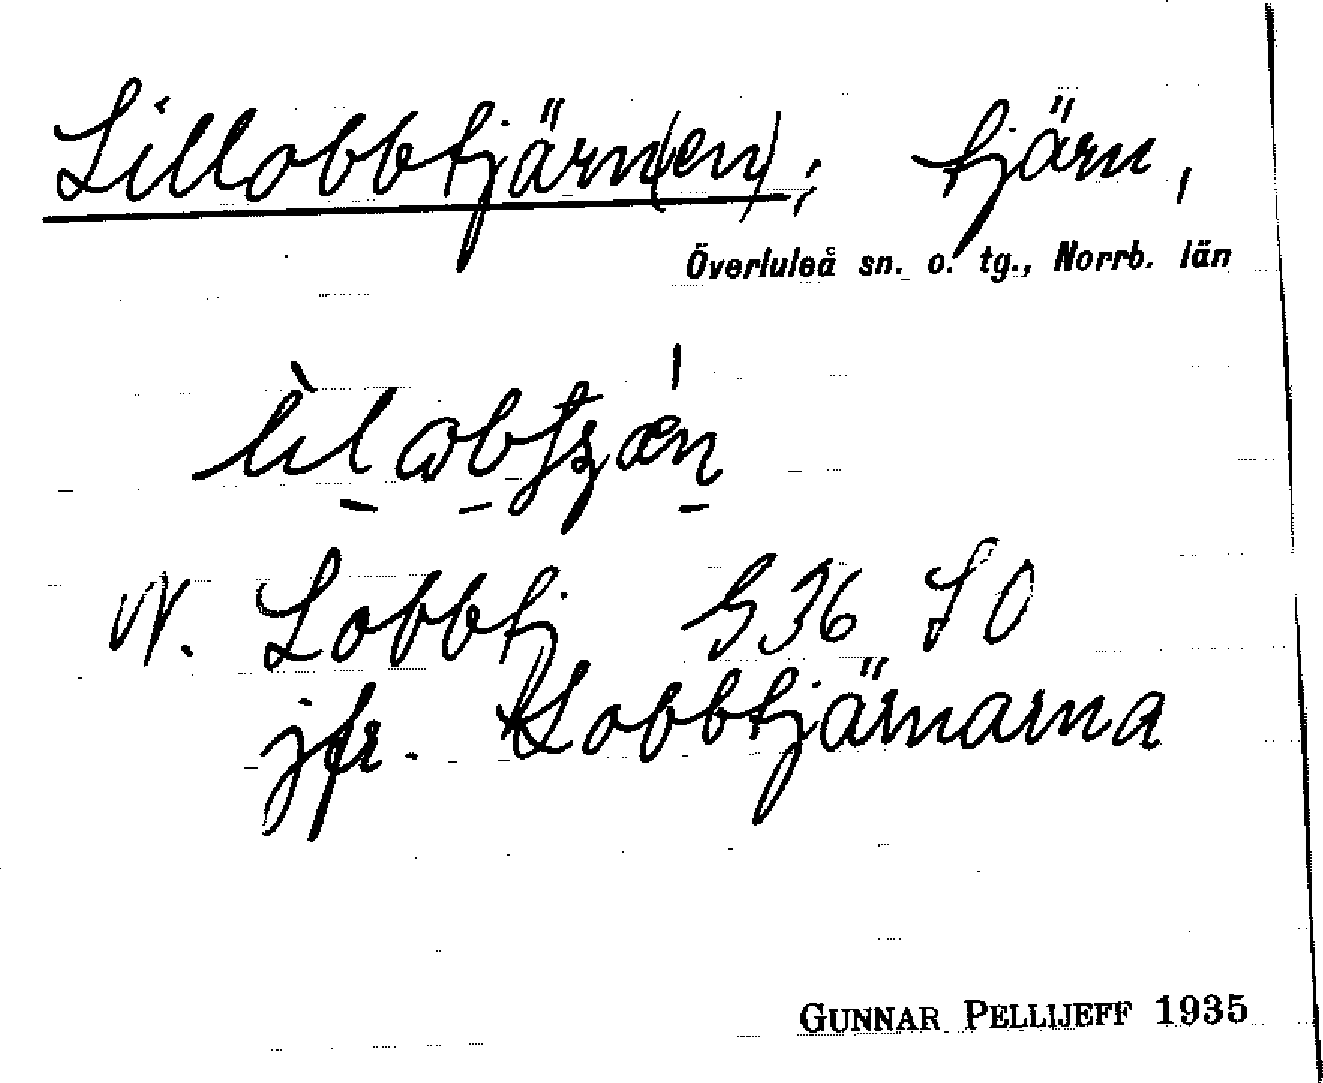 Lillobbtjärn(en); tjärn,
Överluleå sn. o. tg., Norrb. län
N. Lobbtj S36 SO
jfr. Lobbtjärnarna
GUNNAR PELLIJEFF 1935